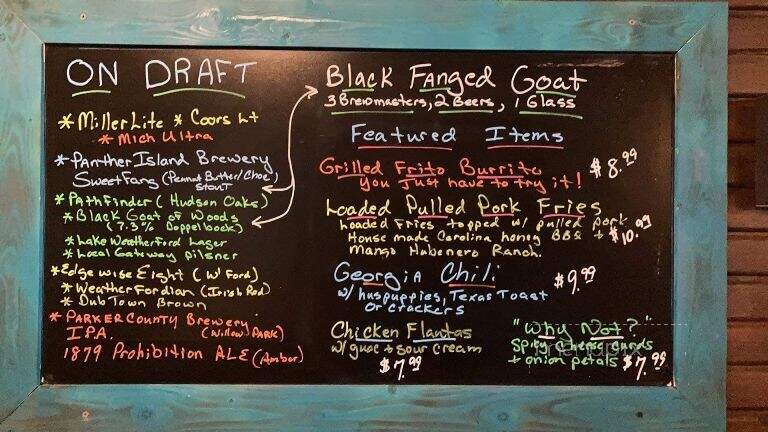 ON DRAFT
* Miller Lite * Coors Lt
* Mich Ultra
* Panther Island Brewery
Sweet Fang (Peanut Butter/Choc.
Stout
* Pathfinder (Hudson Oaks)
* Black Goat of Woods
(7.3% Doppelbock)
* Lake Weatherford Lager
* Local Gateway Pilsner
* Edge wise Eight (W'Ford)
* Weather Fordian (Irish Red)
* Dub Town Brown
* Parker County Brewery
I.P.A. (Willow Park)
1879 Prohibition ALE (Amber)
Black Fanged Goat
3 Brewmasters, 2 Beers, 1 Glass
Featured Items
Grilled Frito Burrito $8.99
you just have to try it!
Loaded Pulled Pork Fries
Loaded Fries topped w/ pulled pork
House made Carolina honey BBQ + $10.99
Mango Habenero Ranch.
Georgia Chili $9.99
w/ huspuppies, Texas Toast
or crackers
Chicken Flantas
w/ guac + sour cream
$7.99
"Why Not?"
Spicy cheese curds
+ onion petals $7.99